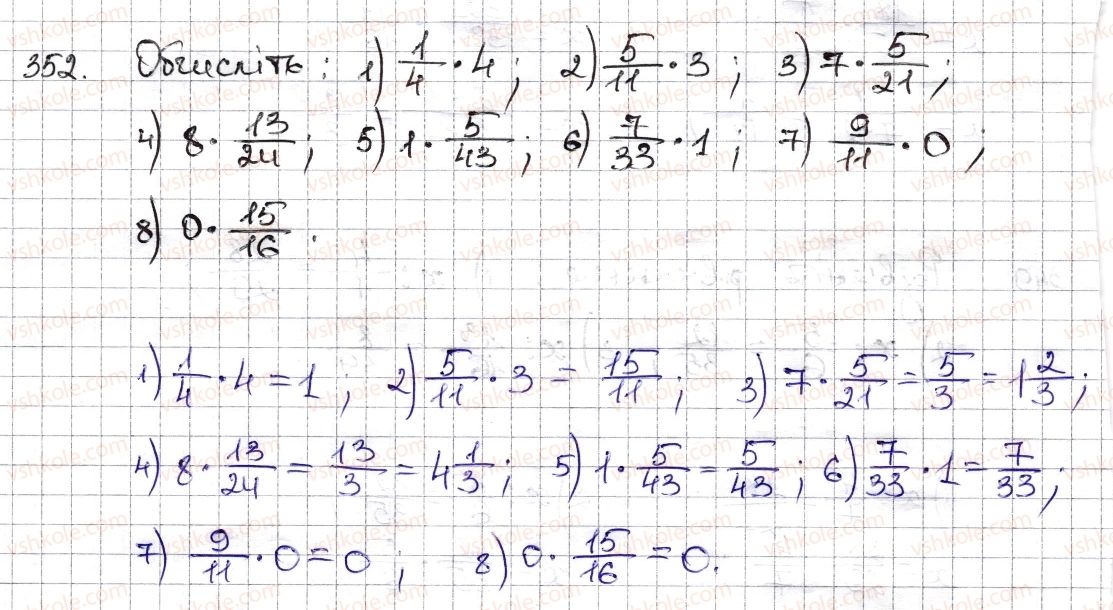 352. Обчисліть: 1) 1/4 · 4; 2) 5/11 · 3; 3) 7 · 5/21;
4) 8 · 13/24; 5) 1 · 5/43; 6) 7/33 · 1; 7) 9/11 · 0;
8) 0 · 15/16.
1) 1/4 · 4 = 1, 2) 5/11 · 3 = 15/11; 3) 7 · 5/21 = 5/3 = 1 2/3;
4) 8 · 13/24 = 13/3 = 4 1/3; 5) 1 · 5/43 = 5/43; 6) 7/33 · 1 = 7/33;
7) 9/11 · 0 = 0; 8) 0 · 15/16 = 0.